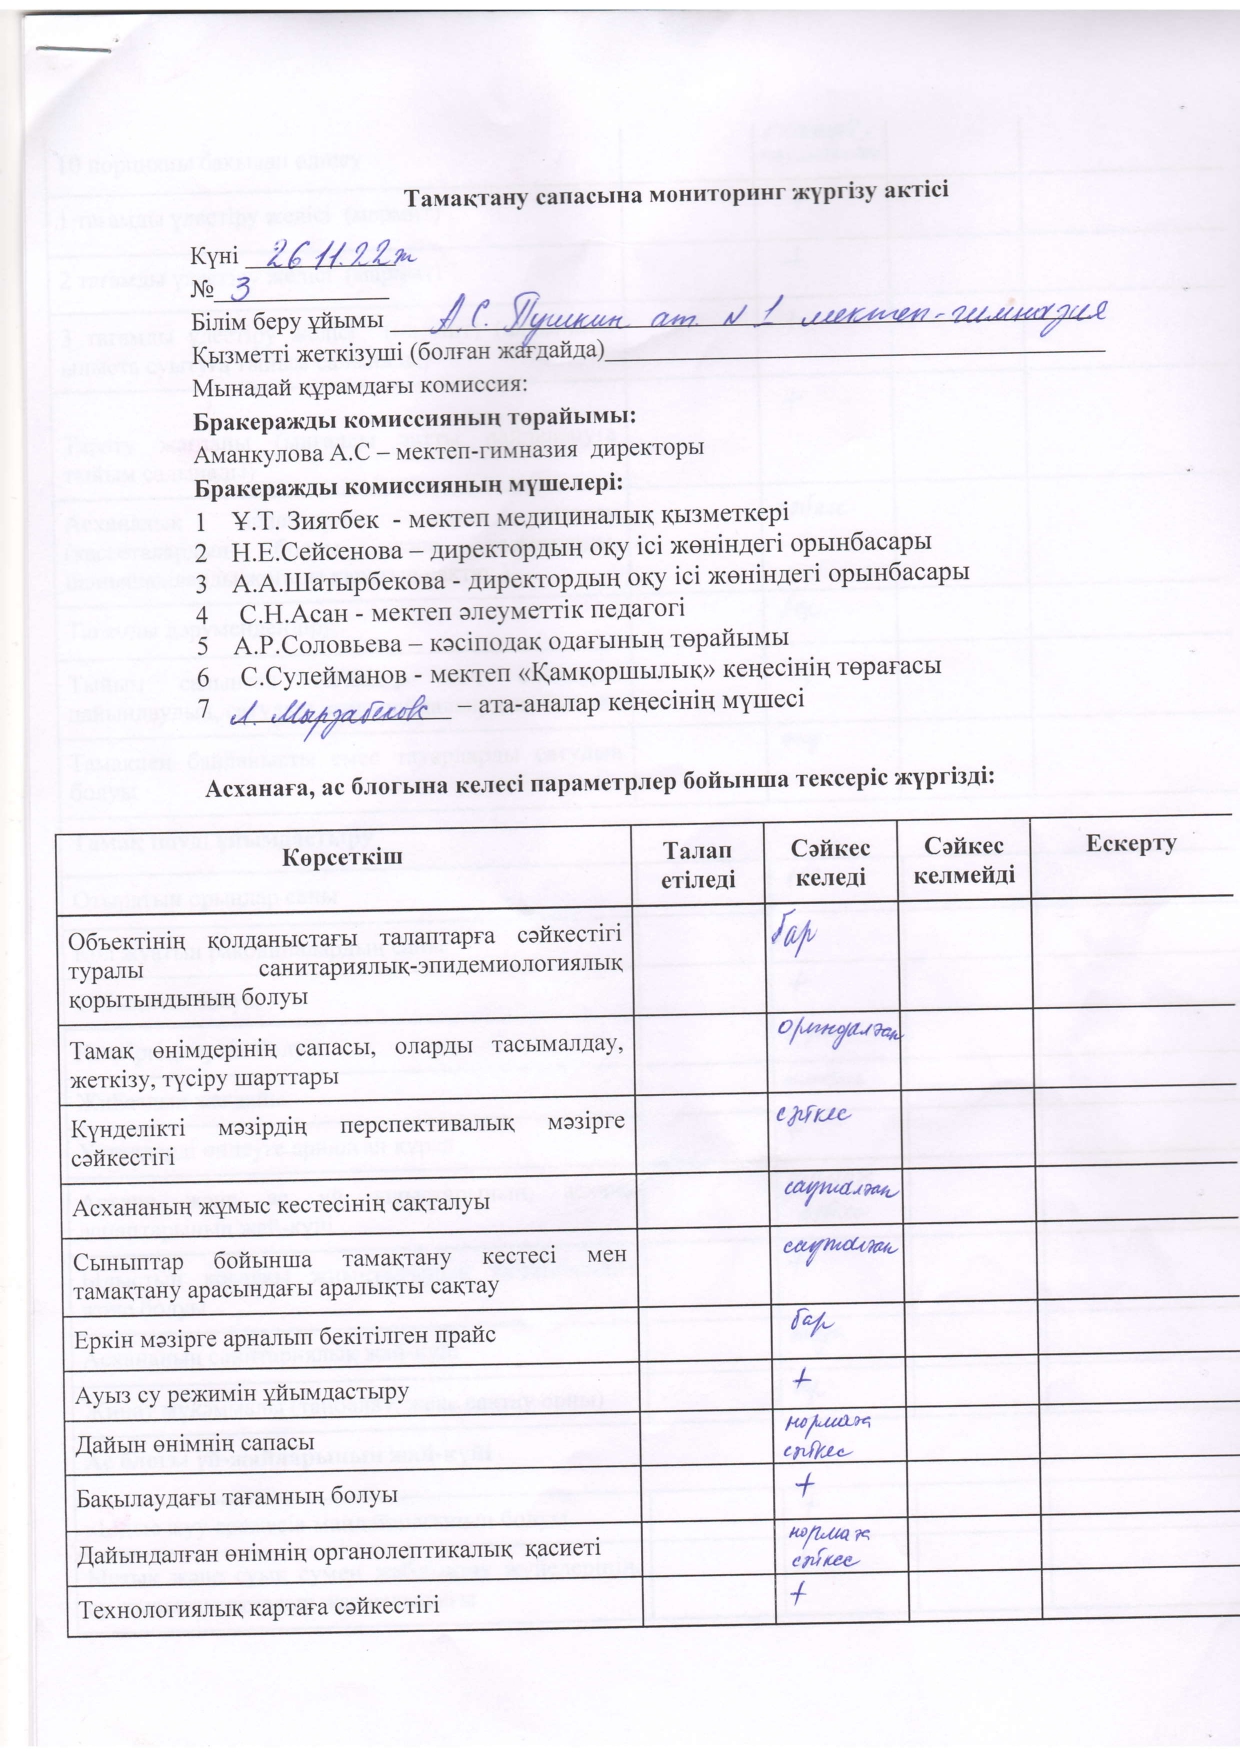 Тамақтану сапасына мониторинг жүргізу актісі
Күні 26 11.22ж
№ 3
Білім беру ұйымы А.С. Пушкин ат. N 1 мектеп-гимназия
Қызметті жеткізуші (болған жағдайда)
Мынадай құрамдағы комиссия:
Бракеражды комиссияның төрайымы:
Аманкулова А.С – мектеп-гимназия директоры
Бракеражды комиссияның мүшелері:
1 Ұ.Т. Зиятбек - мектеп медициналық қызметкері
2 Н.Е.Сейсенова – директордың оқу ісі жөніндегі орынбасары
3 А.А.Шатырбекова - директордың оқу ісі жөніндегі орынбасары
4 С.Н.Асан - мектеп әлеуметтік педагогі
5 А.Р.Соловьева – кәсіподақ одағының төрайымы
6 С.Сулейманов - мектеп «Қамқоршылық» кеңесінің төрағасы
7 Мырзабеков – ата-аналар кеңесінің мүшесі
Асханаға, ас блогына келесі параметрлер бойынша тексеріс жүргізді:
Көрсеткіш Талап Сәйкес Сәйкес Ескерту
етіледі келеді келмейді
Объектінің қолданыстағы талаптарға сәйкестігі бар
туралы санитариялық-эпидемиологиялық
қорытындының болуы
Тамақ өнімдерінің сапасы, оларды тасымалдау, орындалған
жеткізу, түсіру шарттары
Күнделікті мәзірдің перспективалық мәзірге сәйкес
сәйкестігі
Асхананың жұмыс кестесінің сақталуы сақталған
Сыныптар бойынша тамақтану кестесі мен сақталған
тамақтану арасындағы аралықты сақтау
Еркін мәзірге арналып бекітілген прайс бар
Ауыз су режимін ұйымдастыру +
Дайын өнімнің сапасы нормаға
сәйкес
Бақылаудағы тағамның болуы +
Дайындалған өнімнің органолептикалық қасиеті нормаға
сәйкес
Технологиялық картаға сәйкестігі +